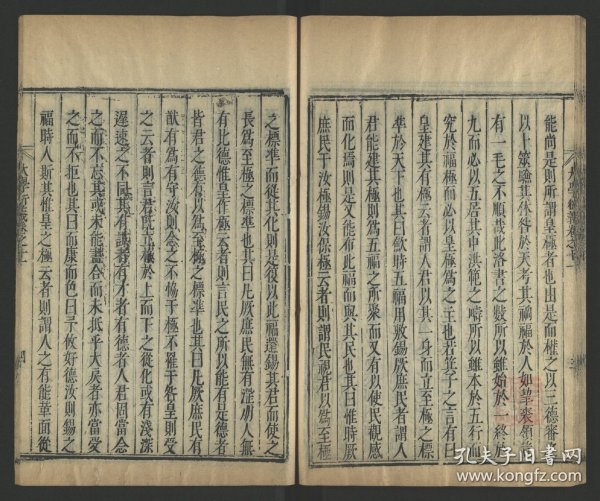 能尚是則所謂皇極者也由是而權之以三德審之
以卜筮驗其休咎於天考其禍福於人如挈裘領豈
有一毛之不順哉此洛書之數所以雖始於一終於
九而必以五居其中洪範之疇所以雖本於五行
究於福極而必以皇極爲之主也若箕子之言有曰
皇建其有極云者謂人君以其一身而立至極之標
準於天下也其曰斂時五福用敷錫厥庶民者謂人
君能建其極則爲五福之所聚而又有以使民觀感
而化焉則是又能布此福而與其民也其曰惟時厥
庶民于汝極錫汝保極云者則謂民視君以爲至極
大學衍義卷之十一
之標準而從其化則是復以此福還錫其君而使之
長爲至極之標準也其曰凡厥庶民無有淫朋人無
有比德惟皇作極云者則言民之所以能有是德者
皆君之德有以爲至極之標準也其曰凡厥庶民有
猷有爲有守汝則念之不協于極不罹于咎皇則受
之云者則言君旣立極於上而下之從化或有淺深
遲速之不同其有謀者有才者有德者人君固當念
之而不忘其或未能盡合而未抵乎大戾者亦當受
之而不拒也其曰而康而色曰予攸好德汝則錫之
福時人斯其惟皇之極云者則謂人之有能革面從
大學衍義卷之十一
孔夫子旧书网
www.kongfz.com